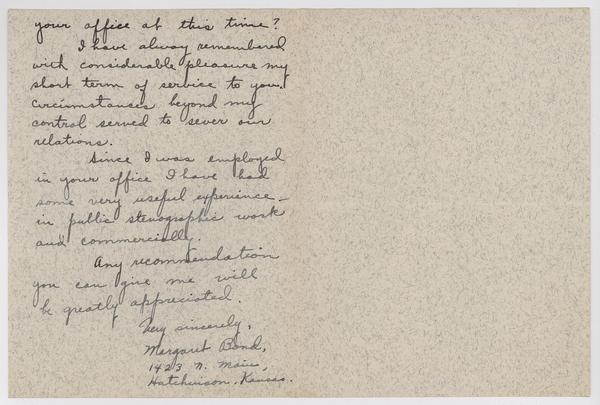 your office at this time?
I have alway remembered
with considerable pleasure my
short term of service to you.
Circumstances beyond my
control served to sever our
relations.
Since I was employed
in your office I have had
some very useful experience -
in public stenographic work
and commercially.
Any recommendation
you can give me will
be greatly appreciated.
Very sincerely,
Margaret Bond,
1423 N. Main,
Hutchinson, Kansas.